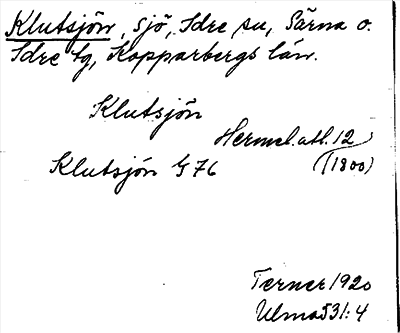 Klutsjön, sjö, Idre su, Särna o.
Idre tg, Kopparbergs län.
Klutsjön
Hermel. atl. 12
(1800)
Klutsjön G 76
Terner 1920
Ulma 531:4